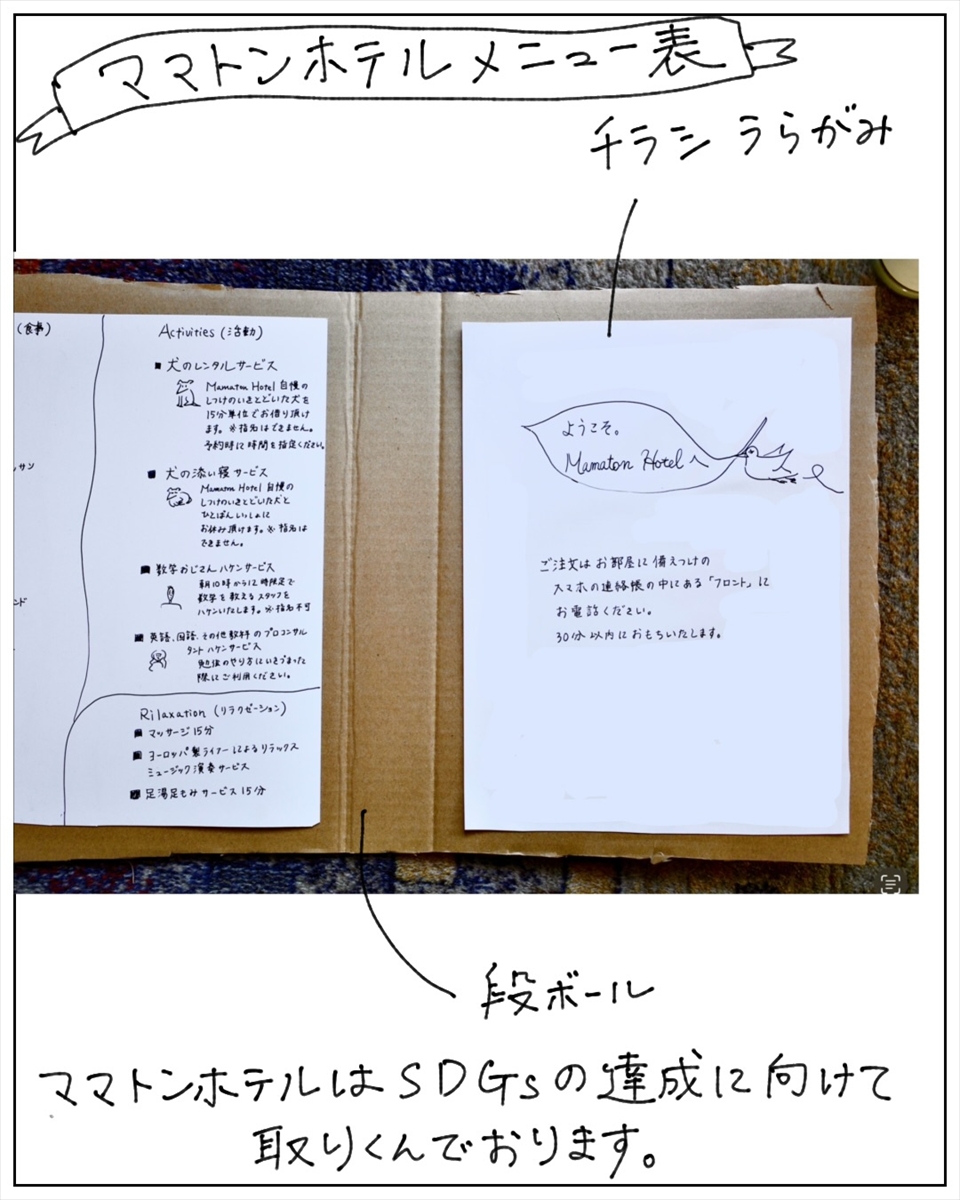 ママトンホテルメニュー表
チラシ うらがみ
(食事)
ッサン
ンド
Activities (活動)
■ 犬のレンタルサービス
Mamaton Hotel 自慢の
しつけのいきとどいた犬を
15分単位でお借り頂け
ます。※指名はできません。
予約時に時間を指定ください。
■ 犬の添い寝サービス
Mamaton Hotel 自慢の
しつけのいきとどいた犬と
ひとばんいっしょに
お休み頂けます。※指名は
できません。
■ 数学おじさんハケンサービス
朝10時から12時限定で
数学を教えるスタッフを
ハケンいたします。※指名不可
■ 英語、国語、その他教科のプロコンサル
タントハケンサービス
勉強のやり方にいきづまった
際にご利用ください。
Rilaxation (リラクゼーション)
■ マッサージ15分
■ ヨーロッパ製ライアーによるリラックス
ミュージック演奏サービス
■ 足湯足もみサービス15分
ようこそ。
Mamaton Hotel へ
ご注文はお部屋に備えつけの
スマホの連絡帳の中にある「フロント」に
お電話ください。
30分以内におもちいたします。
段ボール
ママトンホテルはSDGsの達成に向けて
取りくんでおります。